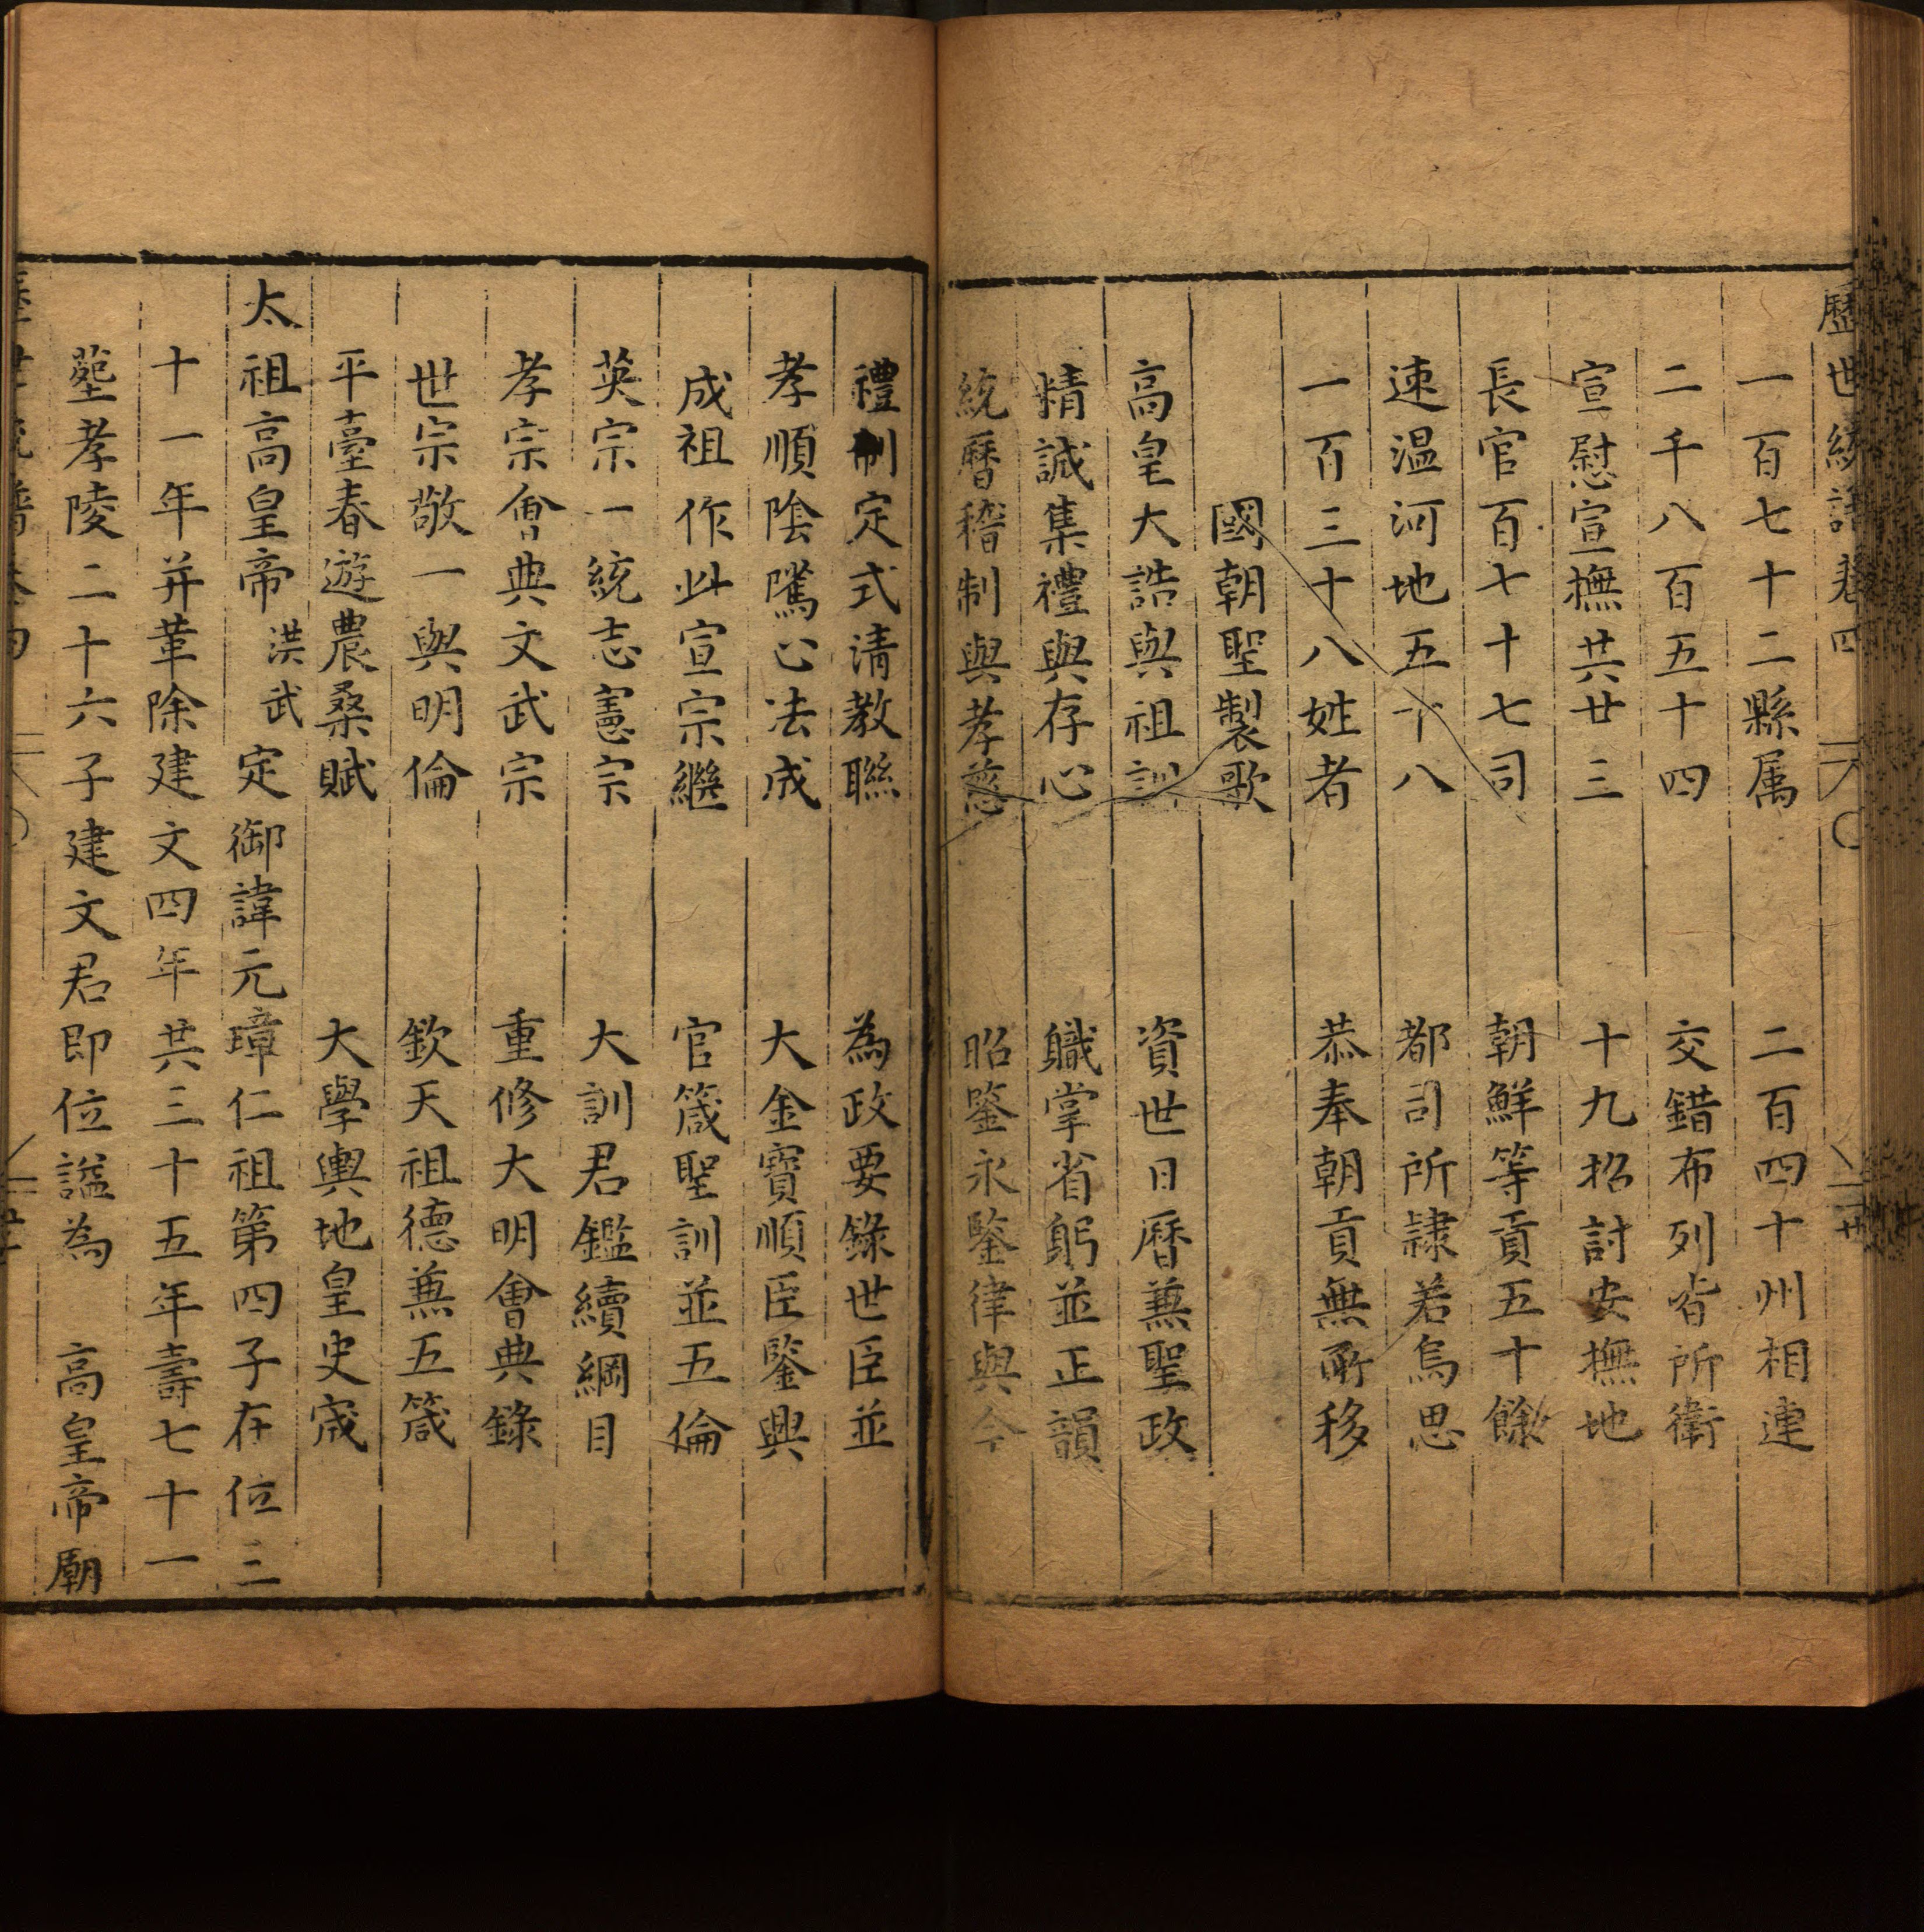 歷世統譜卷四
一百七十二縣属　二百四十州相連
二千八百五十四　交錯布列皆所衛
宣慰宣撫共廿三　十九招討安撫地
長官百七十七司　朝鮮等貢五十餘
速温河地五十八　都司所隷若烏思
一百三十八姓者　恭奉朝貢無所移
國朝聖製歌
高皇大誥與祖訓　資世日曆蕪聖政
精誠集禮與存心　職掌省躬並正韻
統曆稽制與孝慈　昭鍳永鍳律與令
禮制定式清教聮　為政要錄世臣並
孝順陰隲心法成　大金寶順臣鍳興
成祖作此宣宗繼　官箴聖訓並五倫
英宗一統志憲宗　大訓君鑑續綱目
孝宗會典文武宗　重修大明會典錄
世宗敬一與明倫　欽天祖德蕪五箴
平臺春遊農桑賦　大學輿地皇史宬
太祖高皇帝洪武定御諱元璋仁祖第四子在位三
十一年并革除建文四年共三十五年壽七十一
塟孝陵二十六子建文君即位謚為　高皇帝廟